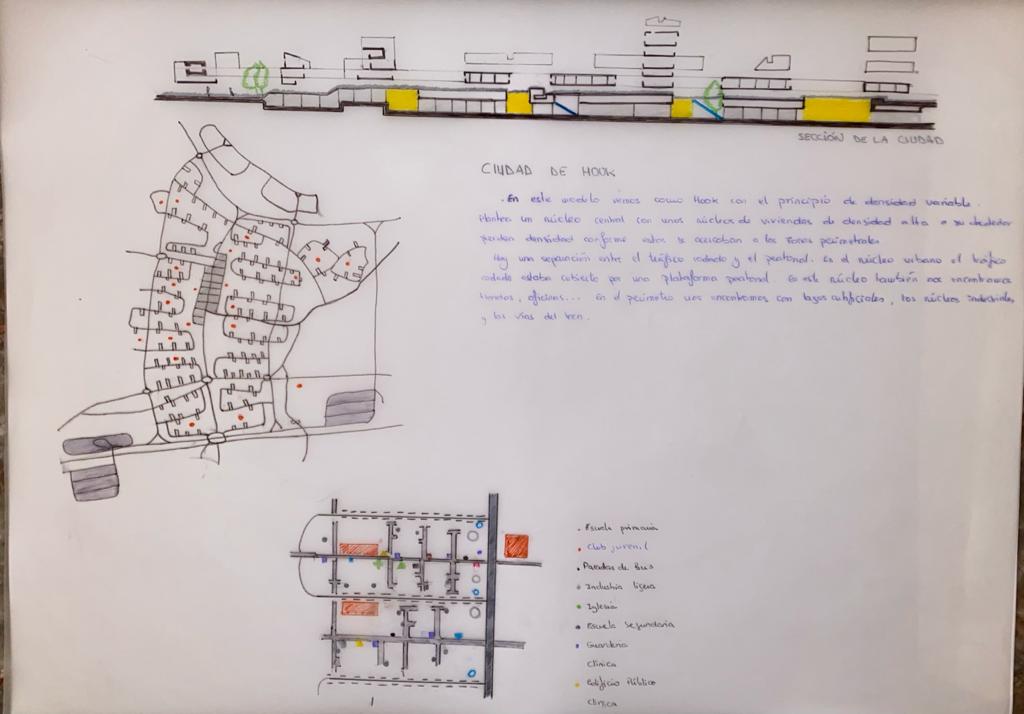 SECCIÓN DE LA CIUDAD
CIUDAD DE HOOK
. En este modelo vemos como Hook con el principio de densidad variable.
Plantea un núcleo central con unos núcleos de viviendas de densidad alta a su alrededor
pierden densidad conforme estos se acercaban a las zonas perimetrales.
Hay una separación entre el tráfico rodado y el peatonal. En el núcleo urbano el tráfico
rodado estaba cubierto por una plataforma peatonal. En este núcleo también nos encontramos
tiendas, oficinas... En el perímetro nos encontramos con lagos artificiales, los núcleos industriales
y las vías del tren.
. Escuela primaria
. Club juvenil
. Paradas de Bus
. Industria ligera
. Iglesia
. Escuela Segundaria
. Guardería
Clínica
. Edificio Público
Clínica